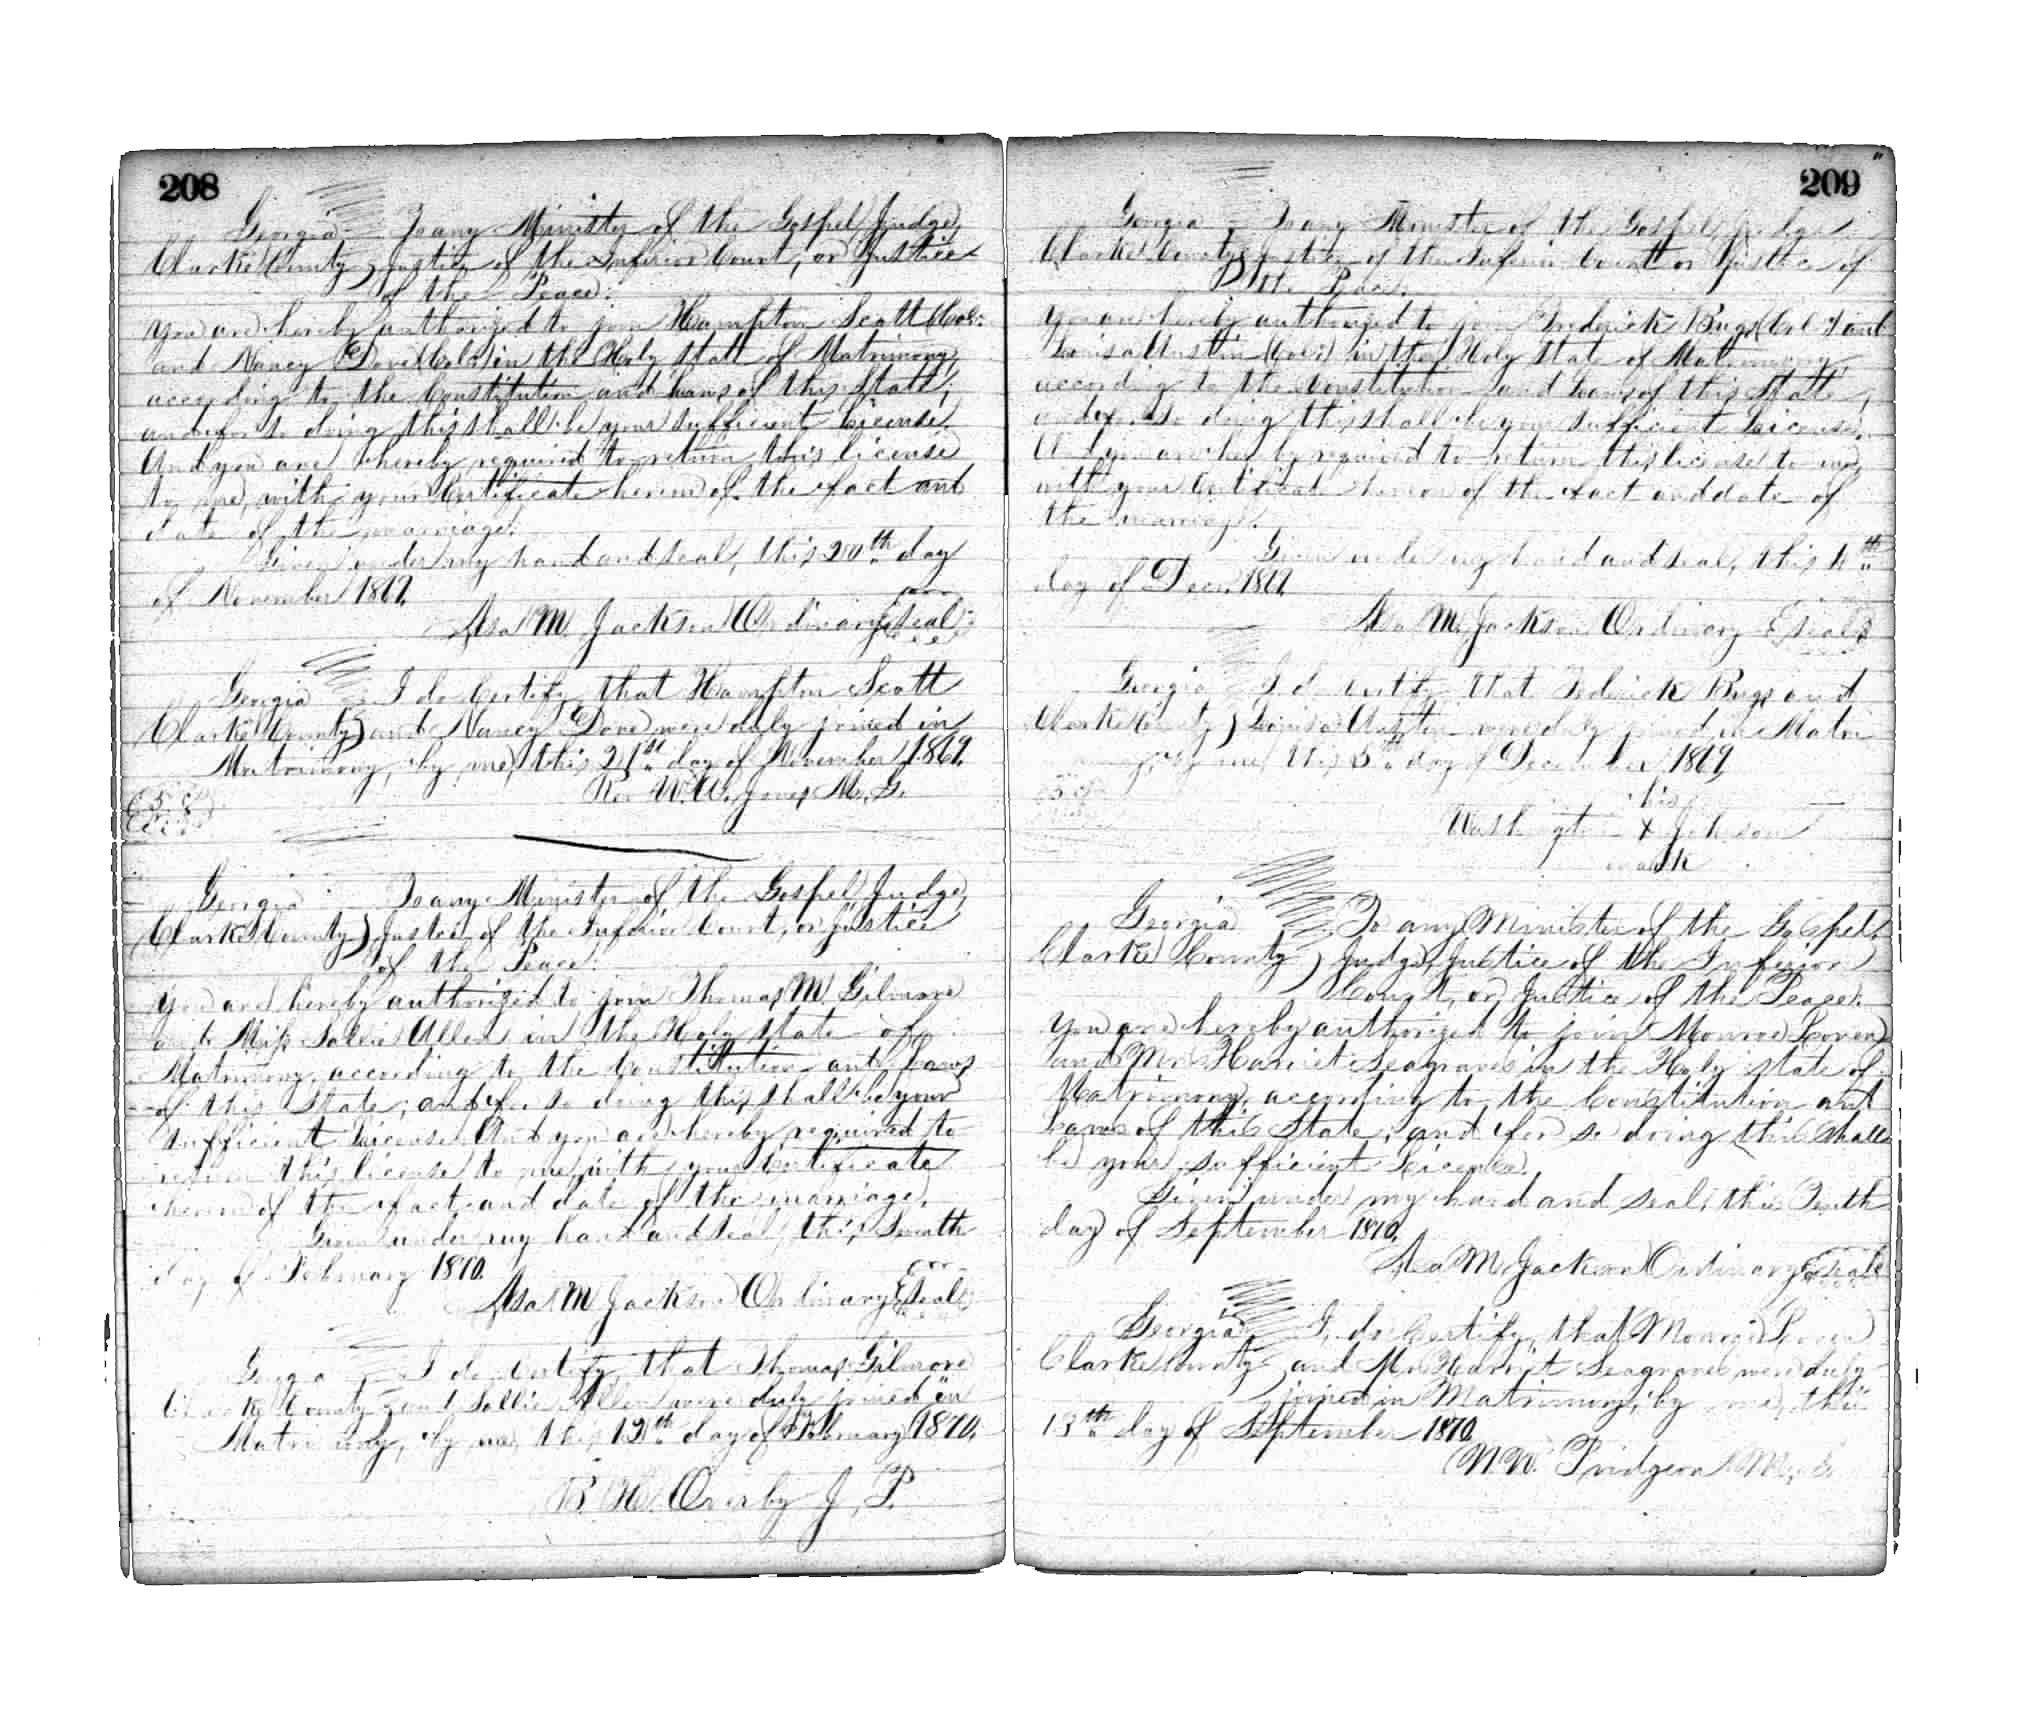 208
Georgia To any Minister of the Gospel, Judge,
Clarke County) Justice of the Inferior Court, or Justice
of the Peace:
You are hereby authorized to join Hampton Scott (Col:
and Nancy Dove (Col:) in the Holy state of Matrimony,
according to the Constitution and Laws of this State;
and for so doing this shall be your sufficient License.
And you are hereby required to return this license
to me, with your Certificate hereon of the fact and
date of the marriage.
Given under my hand and seal, this 20th day
of November 1869.
Asa M. Jackson Ordinary (Seal)
Georgia I do Certify that Hampton Scott
Clarke County) and Nancy Dove were duly joined in
Matrimony, by me, this 21st day of November 1869.
Rev W. W. Jones M. G.
Georgia To any Minister of the Gospel, Judge,
Clarke County) Justice of the Inferior Court, or Justice
of the Peace:
You are hereby authorized to join Thomas M. Gilmore
and Miss Sallie Allen in the Holy state of
Matrimony, according to the Constitution and Laws
of this State; and for so doing this shall be your
sufficient License. And you are hereby required to
return this license to me, with your Certificate
hereon of the fact and date of the marriage.
Given under my hand and seal, this
day of February 1870.
Asa M Jackson Ordinary (Seal)
Georgia I do Certify that Thomas Gilmore
Clarke County and Sallie Allen were duly joined in
Matrimony, by me, this 13th day of February 1870.
B. H. Overby J. P.
209
Georgia To any Minister of the Gospel, Judge
Clarke County Justice of the Inferior Court or Justice of
the Peace:
You are hereby authorized to join Frederick Bugs (Col:) and
Louisa Austin (Col:) in the Holy state of Matrimony,
according to the Constitution and Laws of this State;
and for so doing this shall be your sufficient License.
And you are hereby required to return this license to me,
with your Certificate hereon of the fact and date of
the marriage.
Given under my hand and seal, this 4th
day of Decr. 1869.
Asa M. Jackson Ordinary (Seal)
Georgia I do Certify that Frederick Bugs and
Clarke County) Louisa Austin were duly joined in Matri
mony, by me this 5th day of December 1869,
his
Washington x Johnson
mark
Georgia To any Minister of the Gospel,
Clarke County) Judge, Justice of the Inferior
Court, or Justice of the Peace:
You are hereby authorized to join Monroe
and Mrs Harriet Seagraves in the Holy state of
Matrimony, according to the Constitution and
Laws of this State; and for so doing this shall
be your sufficient License.
Given under my hand and seal, this Tenth
day of September 1870.
Asa M. Jackson Ordinary (Seal
Georgia I, do Certify, that Monroe
Clarke County and Mrs Harriet Seagraves were duly
joined in Matrimony, by me, this
13th day of September 1870
W. W. Pridgeon M. G.